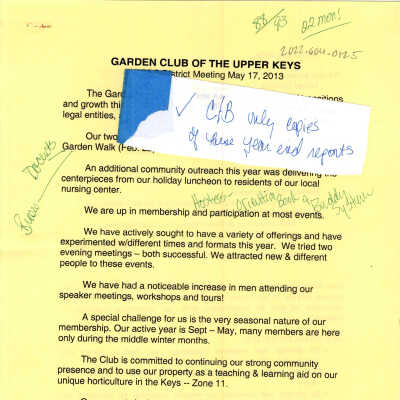 88 93 22 mon!
2022.604.0125
GARDEN CLUB OF THE UPPER KEYS
District Meeting May 17, 2013
The Gard
and growth thi
legal entities,
✓ C/B only copies
of these year end reports
Our two
Garden Walk (Feb.
An additional community outreach this year was delivering the
centerpieces from our holiday luncheon to residents of our local
nursing center.
Hostess - Orientation Cont a Buddy System
We are up in membership and participation at most events.
We have actively sought to have a variety of offerings and have
experimented w/different times and formats this year. We tried two
evening meetings – both successful. We attracted new & different
people to these events.
We have had a noticeable increase in men attending our
speaker meetings, workshops and tours!
A special challenge for us is the very seasonal nature of our
membership. Our active year is Sept – May, many members are here
only during the middle winter months.
The Club is committed to continuing our strong community
presence and to use our property as a teaching & learning aid on our
unique horticulture in the Keys -- Zone 11.